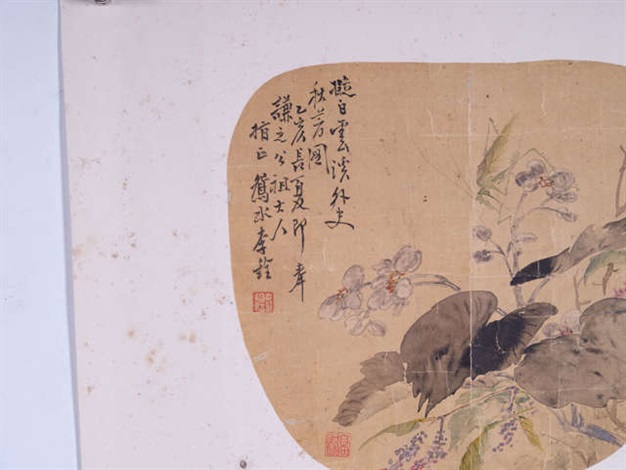 擬白雲溪外史
秋芳圖
乙亥長夏即奉
謙之公祖大人
指正 鴛水李